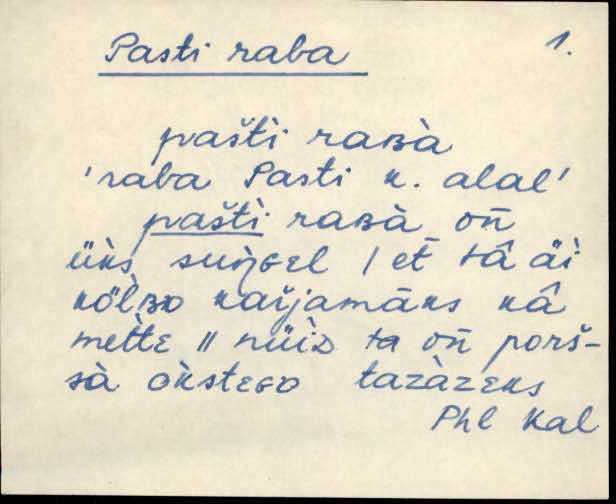 Pasti raba 1.
pašti raʙà
'raba Pasti k. alal'
pašti raʙà oñ
üks suŋ̀ɢel / et̄ tâ äi
kö̀lʙᴅ kaŕjamāks kâ
mette ॥ nüìᴅ ta oñ porš-
sà òksteɢᴅ tazàzeks
Phl Kal